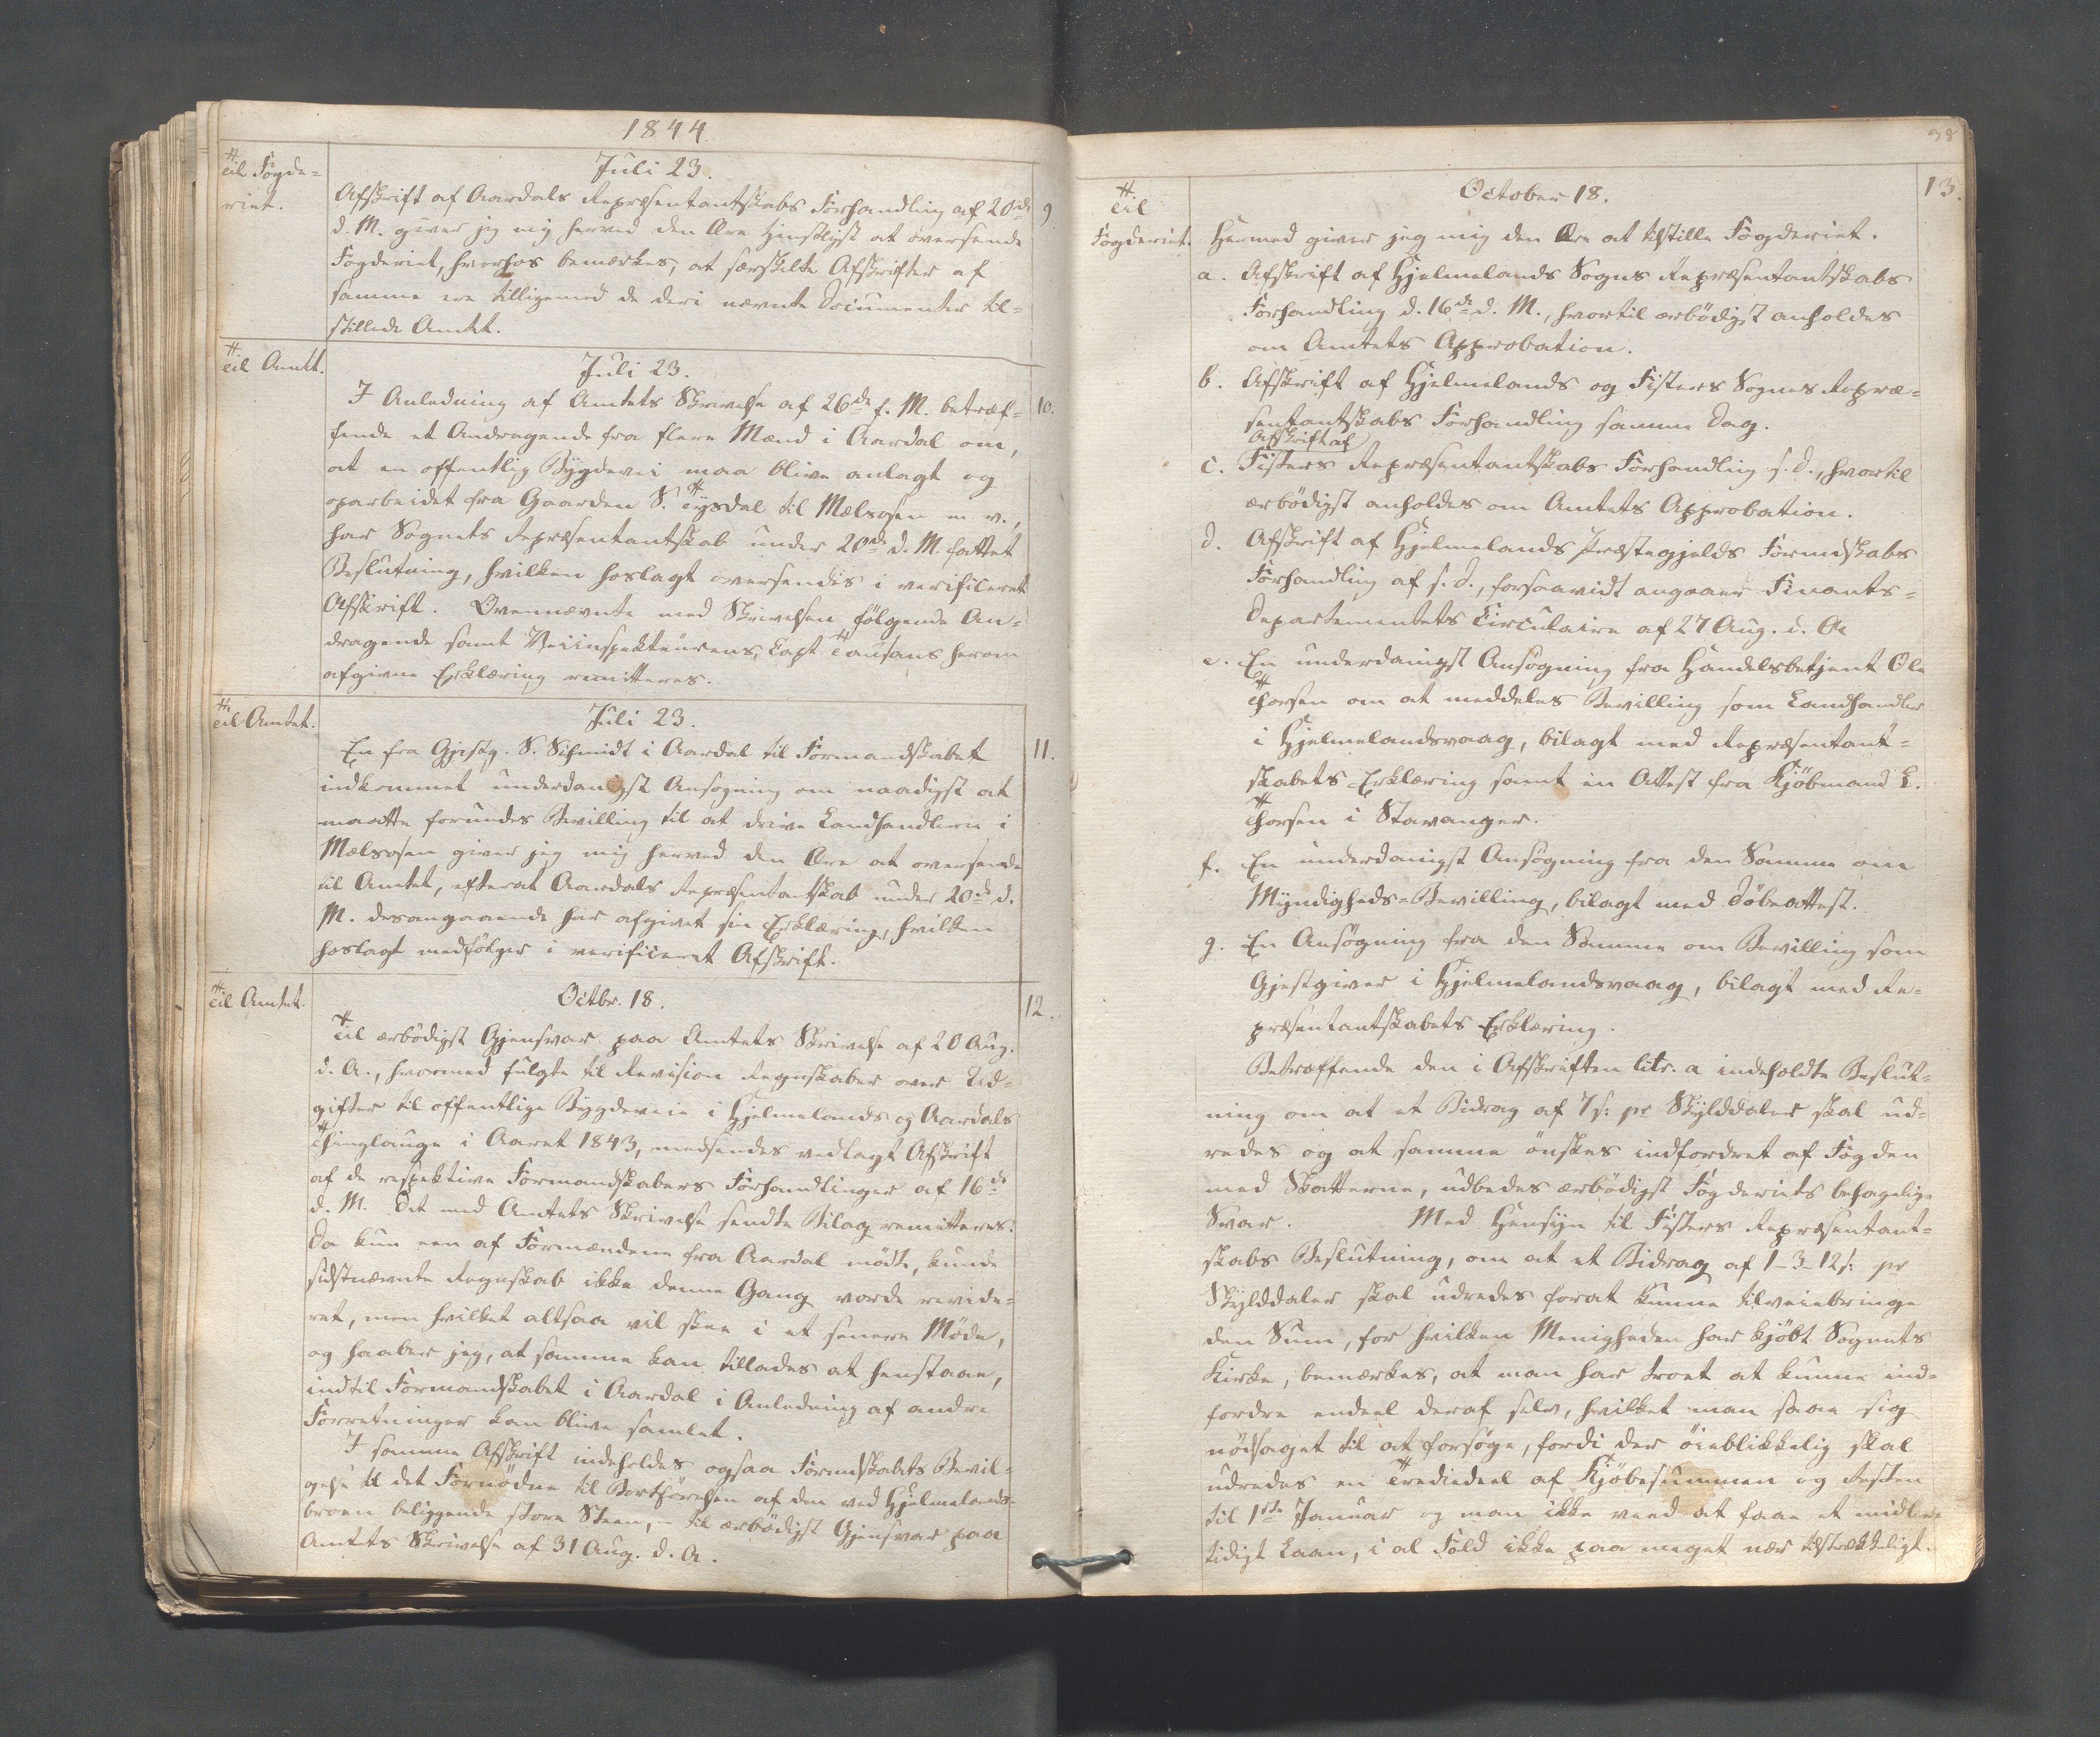 1844.
Til Fogde=
riet.
Juli 23.
9.
Afskrift af Aardals Repræsentantskabs Forhandling af 20de
d. M. giver jeg mig herved den Ære tjenstligst at oversende
Fogderiet, hvorhos bemærkes, at særskilte Afskrifter af
samme ere tilligemed de deri nævnte Documenter til=
stillede Amtet.
Til Amtet.
Juli 23.
10.
I Anledning af Amtets Skrivelse af 26de f. M. betræf=
fende et Andragende fra flere Mænd i Aardal om,
at en offentlig Bygdevei maa blive anlagt og
oparbeidet fra Gaarden S. Tysdal til Mælsosen m. v.,
har Sognets Repræsentantskab under 20de d. M. fattet
Beslutning, hvilken hoslagt oversendes i verificeret
Afskrift. Ovennævnte med Skrivelsen følgende An=
dragende samt Veiinspekteurens, Capt Tausans herom
afgivne Erklæring remitteres.
Til Amtet.
Juli 23.
11.
En fra Gjestg. S. Schmidt i Aardal til Formandskabet
indkommet underdanigst Ansøgning om naadigst at
maatte forundes Bevilling til at drive Landhandlerie i
Mælsosen giver jeg mig herved den Ære at oversende
til Amtet, efterat Aardals Repræsentantskab under 20de d.
M. desangaaende har afgivet sin Erklæring, hvilken
hoslagt medfølger i verificeret Afskrift.
Til Amtet.
Octbr. 18.
12.
Til ærbødigst Gjensvar paa Amtets Skrivelse af 20 Aug.
d. A., hvormed fulgte til Revision Regnskaber over Ud=
gifter til offentlige Bygdeveie i Hjelmelands og Aardals
Thinglauge i Aaret 1843, medsendes vedlagt Afskrift
af de respektive Formandskabers Forhandlinger af 16de
d. M. Det med Amtets Skrivelse sendte Bilag remitteres.
Da kun een af Formændene fra Aardal mødte, kunde
sidstnævnte Regnskab ikke denne Gang vorde revide=
ret, men hvilket altsaa vil skee i et senere Møde,
og haaber jeg, at samme kan tillades at henstaae,
indtil Formandskabet i Aardal i Anledning af andre
Forretninger kan blive samlet.
I samme Afskrift indeholdes ogsaa Formdskabets Bevil=
gelse til det Fornødne til Bortførelsen af den ved Hjelmelands=
broen beliggende store Steen, – til ærbødigst Gjensvar paa
Amtets Skrivelse af 31 Aug. d. A.
38
Til
Fogderiet.
October 18.
13.
Hermed giver jeg mig den Ære at tilstille Fogderiet.
a. Afskrift af Hjelmelands Sogns Repræsentantskabs
Forhandling d. 16de d. M., hvortil ærbødigst anholdes
om Amtets Approbation.
b. Afskrift af Hjelmelands og Fisters Sognes Repræ=
sentantskabs Forhandling samme Dag.
Afskrift af
c. Fisters Repræsentantskabs Forhandling s. d., hvortil
ærbødigst anholdes om Amtets Approbation.
d. Afskrift af Hjelmelands Præstegjelds Formdskabs
Forhandling af s. d., forsaavidt angaaer Finants=
Departementets Circulaire af 27 Aug. d. A.
e. En underdanigst Ansøgning fra Handelsbetjent Ole
Thorsen om at meddeles Bevilling som Landhandler
i Hjelmelandsvaag, bilagt med Repræsentant=
skabets Erklæring samt en Attest fra Kjöbmand L.
Thorsen i Stavanger.
f. En underdanigst Ansøgning fra den Samme om
Myndigheds=Bevilling, bilagt med Döbeattest.
g. En Ansøgning fra den Samme om Bevilling som
Gjestgiver i Hjelmelandsvaag, bilagt med Re=
præsentantskabets Erklæring.
Betræffende den i Afskriften litr. a indeholdte Beslut=
ning om at et Bidrag af 7 s: pr Skylddaler skal ud=
redes og at samme ønskes indfordret af Fogden
med Skatterne, udbedes ærbødigst Fogderiets behagelige
Svar. Med Hensyn til Fisters Repræsentant=
skabs Beslutning, om at et Bidrag af 1–3–12 s: pr
Skylddaler skal udredes forat kunne tilveiebringe
den Sum, for hvilken Menigheden har kjøbt Sognets
Kirke, bemærkes, at man har troet at kunne ind=
fordre endeel deraf selv, hvilket man saae sig
nødsaget til at forsøge, fordi der øieblikkelig skal
udredes en Trediedeel af Kjöbesummen og Resten
til 1ste Januar og man ikke veed at faae et midler=
tidigt Laan, i al Fald ikke paa meget nær tilstrækkeligt.